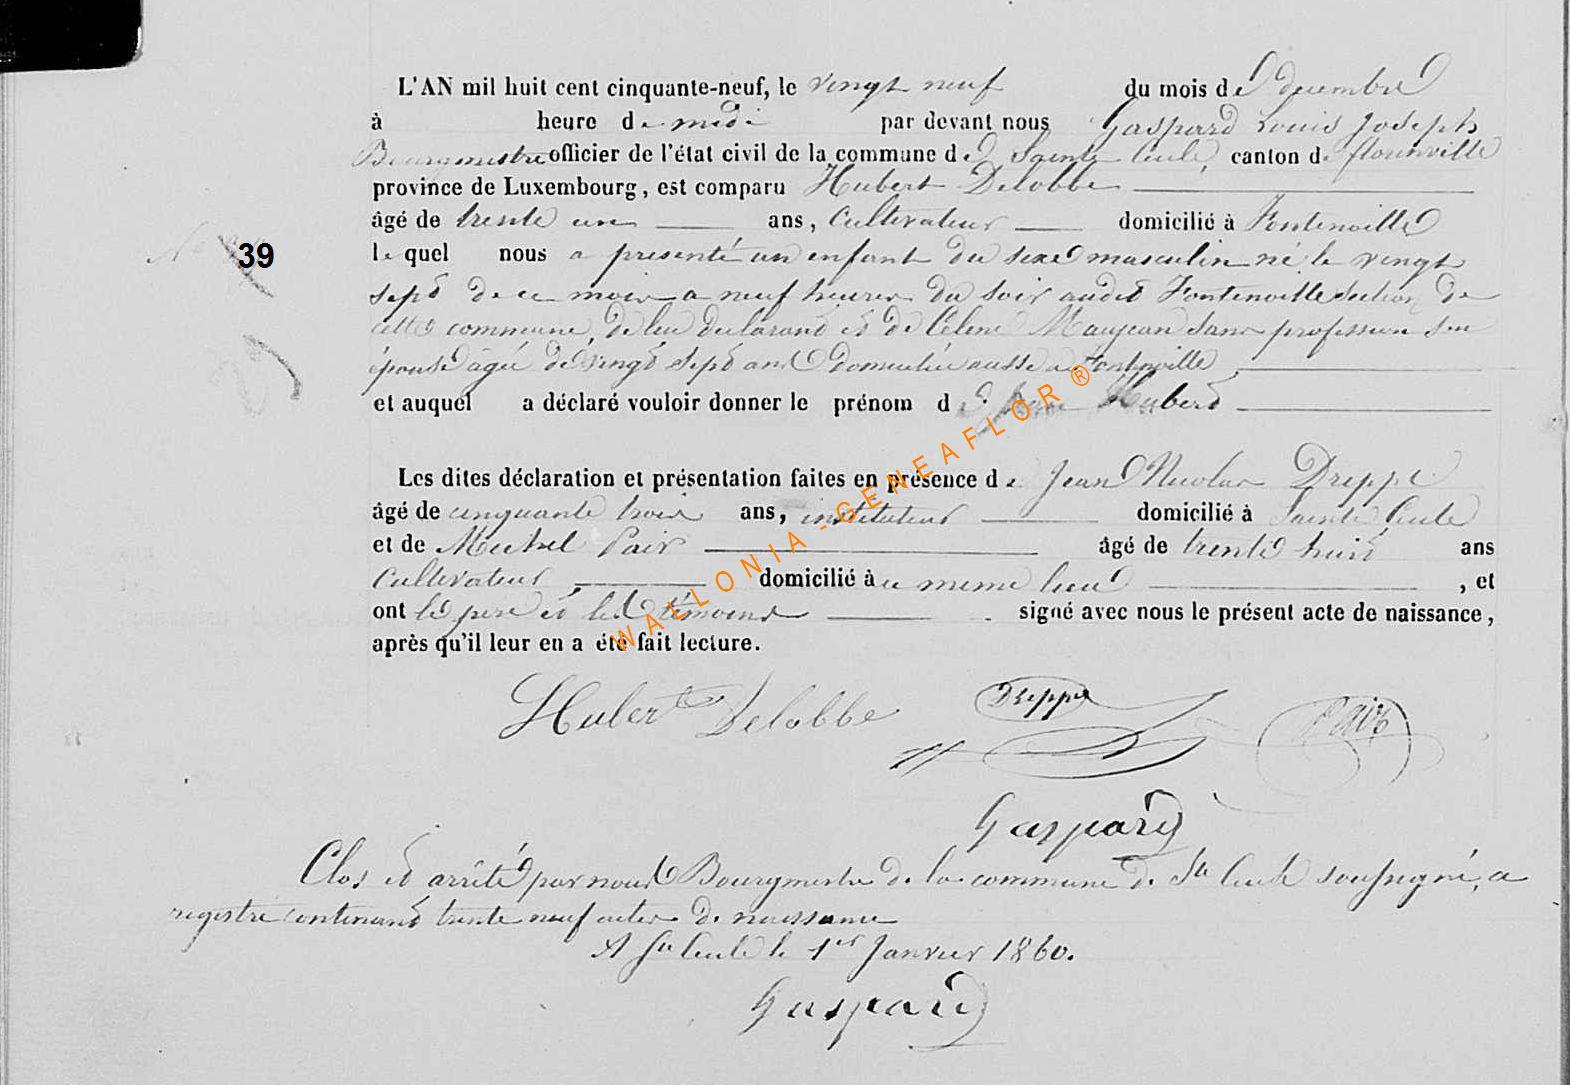 L'AN mil huit cent cinquante-neuf, le vingt neuf du mois de decembre
à heure de midi par devant nous Gaspard Louis Joseph
Bourgmestre officier de l'état civil de la commune de Sainte Cecile, canton de florenville
province de Luxembourg, est comparu Hubert Delobbe
âgé de trente un ans, Cultivateur domicilié à Fontenoille
39
le quel nous a présenté un enfant du sexe masculin né le vingt
sept de ce mois a neuf heures du soir audit Fontenoille section de
cette commune, de lui declarant et de Celine Maujean sans profession son
épouse âgée de vingt sept ans domiciliée aussi a Fontenoille
et auquel a déclaré vouloir donner le prénom de Hubert
Les dites déclaration et présentation faites en présence de Jean Nicolas Dreppe
âgé de cinquante trois ans, instituteur domicilié à Sainte Cecile
et de Michel Paix âgé de trente huit ans
Cultivateur domicilié à meme lieu, et
ont le pere et les témoins signé avec nous le présent acte de naissance,
après qu'il leur en a été fait lecture.
WALLONIA-GENEAFLOR ®
Hubert Delobbe Dreppe Paix
Gaspard
Clos et arrêté par nous Bourgmestre de la commune de Ste Cecile soussigné, ce
registre contenant trente neuf actes de naissance
A Ste Cecile le 1er Janvier 1860.
Gaspard